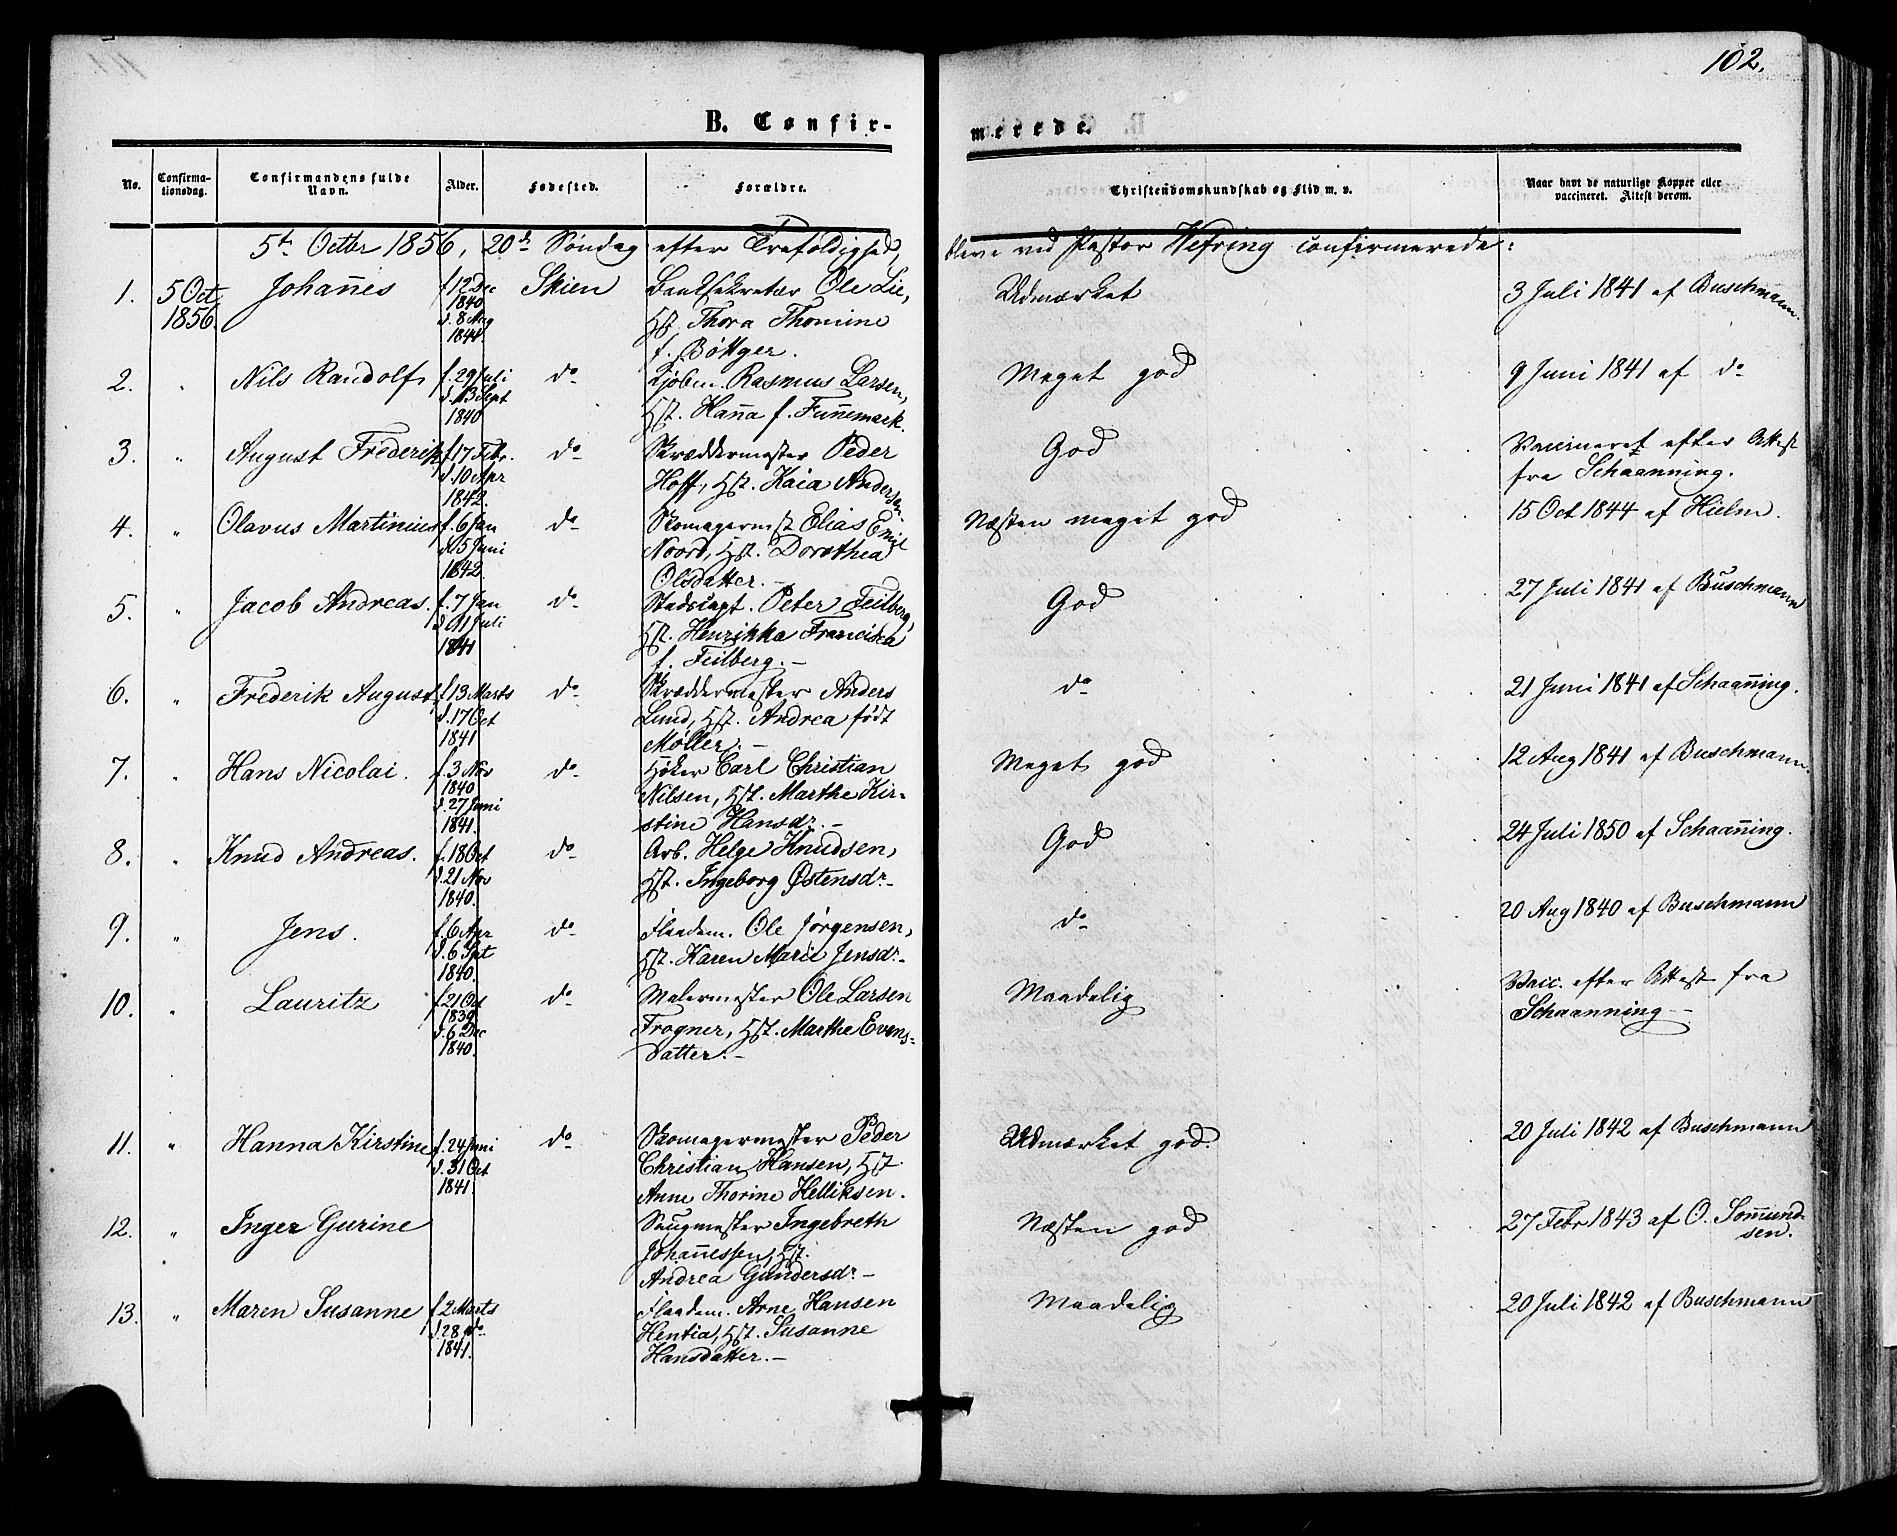 102.
B. Confir-
merede.
No.
Confirma-
tionsdag.
Confirmandens fulde
Navn.
Alder.
Fødested.
Forældre.
Christendomskundskab og Flid m. v.
Naar havt de naturlige Kopper eller
vaccineret. Attest derom.
5te Octbr 1856, 20de Søndag efter Trefoldighed, bleve ved Pastor Wefring confirmerede:
1. 5 Oct 1856. Johan̄es f. 12 Dec 1840 d. 8 Mag 1844 Skien Banksekretær Ole Lie, Hst. Thora Thomine f. Bøttger. Udmærket 3 Juli 1841 af Buschmann.
2. " Nils Randolf f. 29 Juli d. 13 Sept 1840 do Kjøbm. Rasmus Larsen, Hst. Han̄a f. Fun̄emark. Meget god 9 Juni 1841 af do
3. " August Frederik f. 17 Febr. d. 10 Apr 1842 do Skræddermester Peder Hoff, Hst. Kaia Andersen. God Vaccineret efter Attest fra Schaanning.
4. " Olavus Martinius f. 6 Jan d. 5 Juni 1842. do Skomagermst Elias Emil Noord, Hst. Dorothea Olsdatter. Næsten meget god 15 Oct 1844 af Hielm.
5. " Jacob Andreas. f. 7 Jan d. 11 Juli 1841 do Stadscapt. Peter Feilberg, Hst. Henrikka Francisca f. Feilberg. God 27 Juli 1841 af Buschmann
6. " Frederik August f. 13 Marts d. 17 Oct 1841 do Skræddermester Anders Lund, Hst. Andrea født Møller. do 21 Juni 1841 af Schaan̄ing.
7. " Hans Nicolai. f. 3 Nov 1840 d. 27 Juni 1841. do Høker Carl Christian Nilsen, Hst. Marthe Kirstine Hansdr. Meget god 12 Aug 1841 af Buschmann.
8. " Knud Andreas. f. 18 Oct d. 21 Nov 1840. do Arb. Helge Knudsen, Hst. Ingeborg Østensdr God 24 Juli 1850 af Schaan̄ing.
9. " Jens. f. 6 Apr d. 6 Spt 1840. do Flaadem. Ole Jørgensen, Hst. Karen Marie Jensdr. do 20 Aug 1840 af Buschmann
10. " Lauritz f. 21 Oct 1839 d. 6 Dec 1840. do Malermester Ole Larsen Frogner, Hst. Marthe Evensdatter. Maadelig Vacc. efter Attest fra Schaanning
11. " Hanna Kirstine f. 24 Juni d. 31 Oct 1841. do Skomagermester Peder Christian Hansen, Hst. Anne Thorine Helliksen. Udmærket god. 20 Juli 1842 af Buschmann
12. " Inger Gurine Saugmester Ingebreth Johan̄essen, Hst. Andrea Gundersdr Næsten god 27 Febr 1843 af O. Som̄undsen.
13. " Maren Susanne f. 2 Marts d. 28 do 1841. Flaadem. Arne Hansen Hentia, Hst. Susanne Hansdatter. Maadelig 20 Juli 1842 af Buschmann